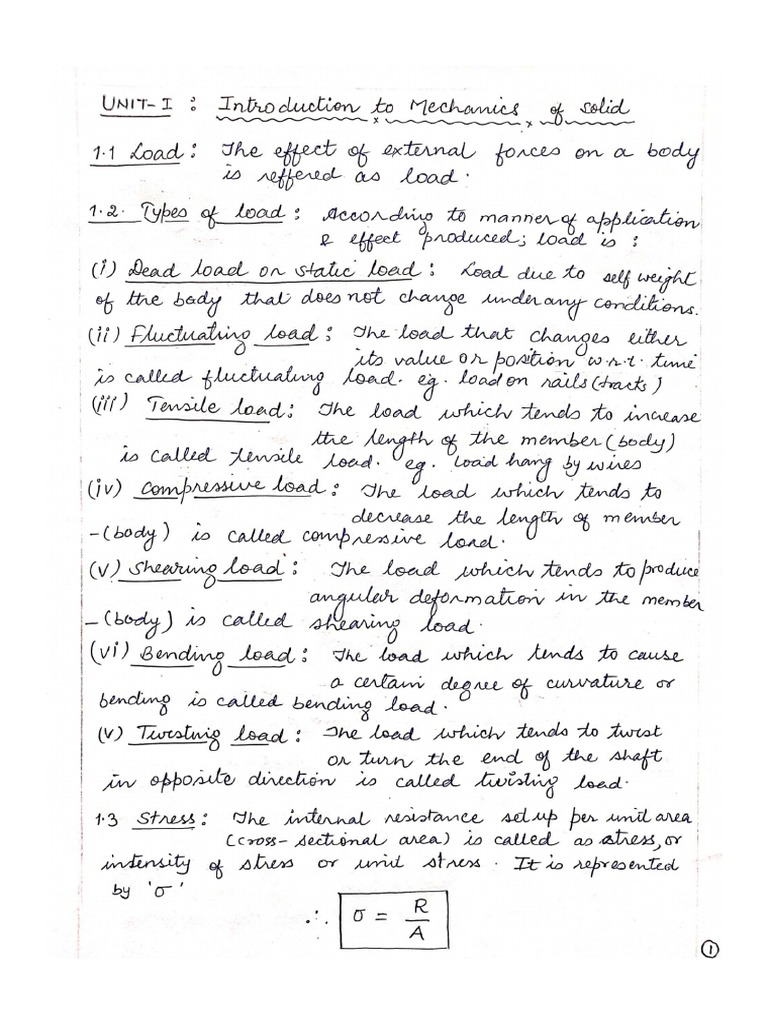 UNIT-I : Introduction to Mechanics of solid
1.1 Load : The effect of external forces on a body
is reffered as load.
1.2. Types of load : According to manner of application
& effect produced; load is :
(i) Dead load or static load : Load due to self weight
of the body that does not change under any conditions.
(ii) Fluctuating load : The load that changes either
its value or position w.r.t. time
is called fluctuating load. eg. load on rails (tracts)
(iii) Tensile load : The load which tends to increase
the length of the member (body)
is called tensile load. eg. load hang by wires
(iv) compressive load : The load which tends to
decrease the length of member
-(body) is called compressive load.
(v) Shearing load : The load which tends to produce
angular deformation in the member
-(body) is called shearing load.
(vi) Bending load : The load which tends to cause
a certain degree of curvature or
bending is called bending load.
(v) Twisting load : The load which tends to twist
or turn the end of the shaft
in opposite direction is called twisting load.
1.3 Stress : The internal resistance set up per unit area
(cross-sectional area) is called as stress, or
intensity of stress or unit stress. It is represented
by 'σ'
∴ σ = R/A
1